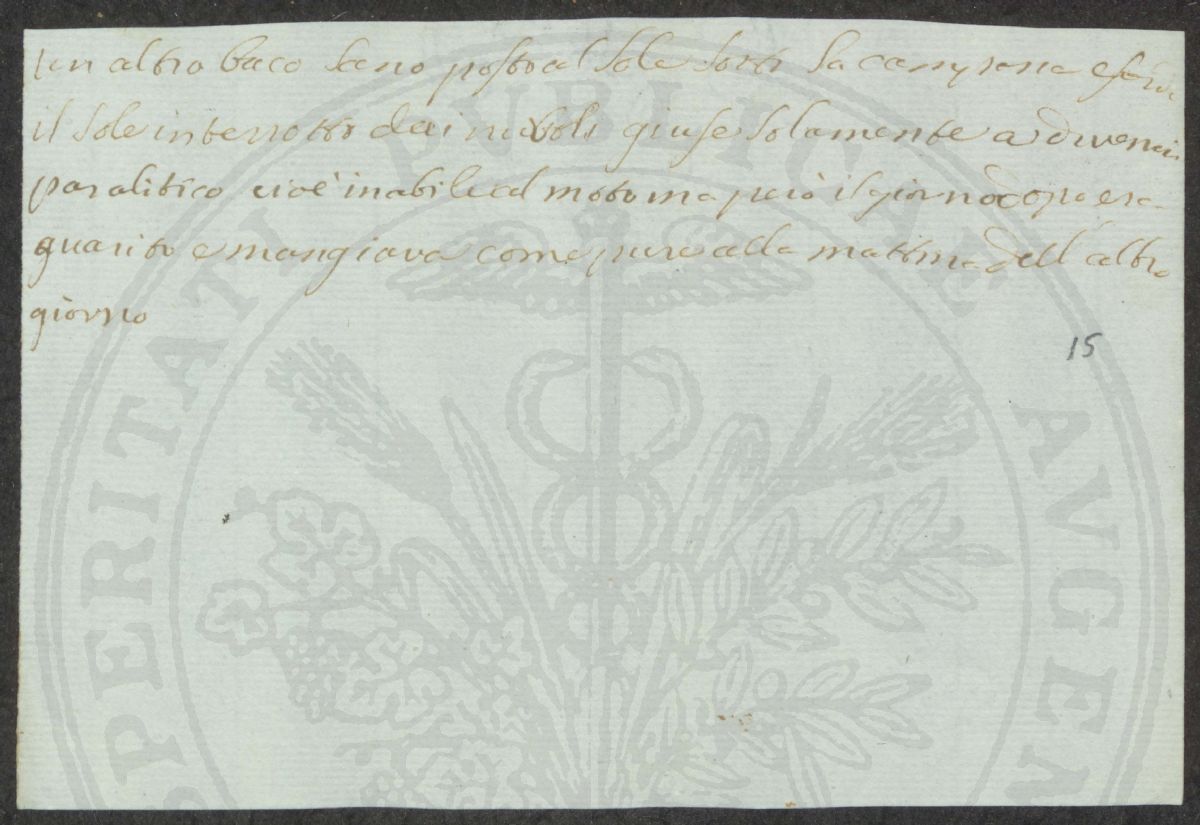 Un altro baco sano posto al Sole sotto la campana
il Sole interrotto dai nuvoli giunse solamente a divenir
paralitico cioè inabile al moto ma però il giorno dopo era
guarito e mangiava come pure alla mattina dell'altro
giorno
15
PERITATI PVBLICAE AVGEN